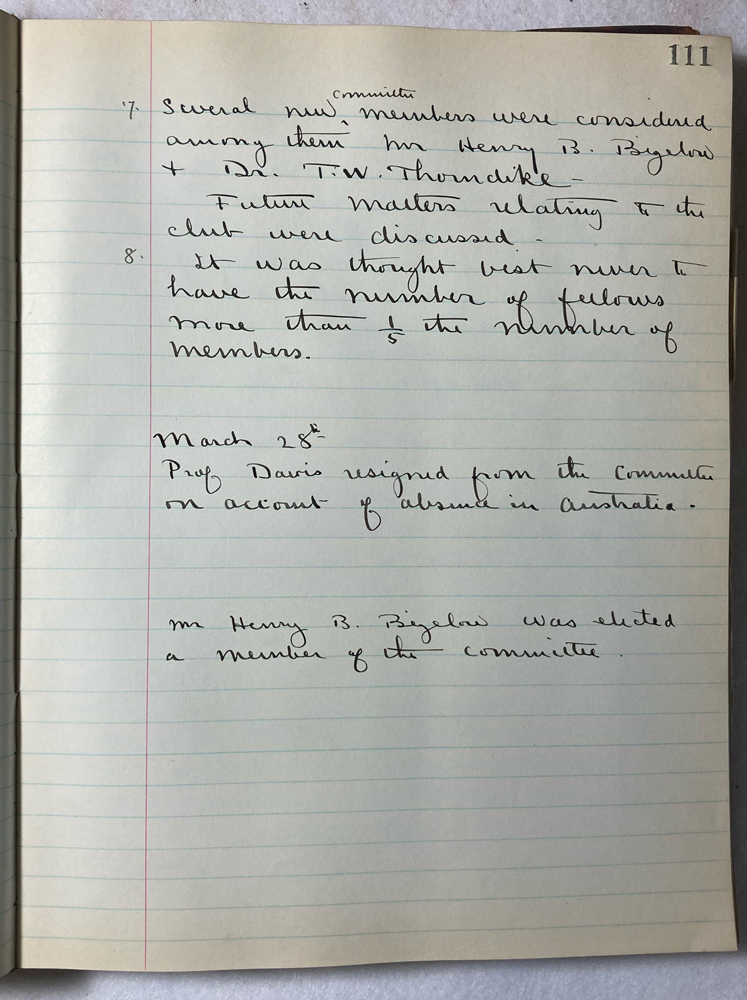 111
7. Several new ^committee members were considered
among them Mr Henry B. Bigelow
+ Dr. T.W. Thorndike -
Future matters relating to the
club were discussed -
8. It was thought best never to
have the number of fellows
more than 1/5 the number of
members.
March 28th
Prof Davis resigned from the Committee
on account of absence in Australia.
Mr Henry B. Bigelow was elected
a member of the committee.